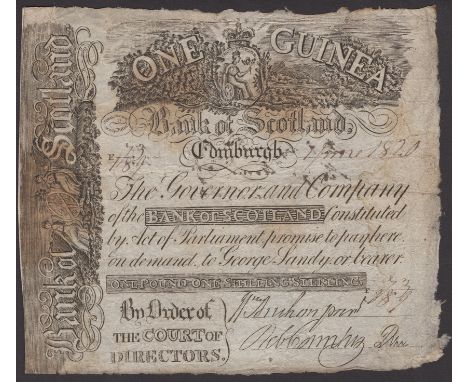 ONE GUINEA
Bank of Scotland,
Edinburgh 1820
The Governor and Company
of the BANK OF SCOTLAND Constituted
by Act of Parliament promise to pay here
on demand to George Sandy or bearer
ONE POUND ONE SHILLING STERLING
By Order of
THE COURT OF
DIRECTORS.
Bank of Scotland